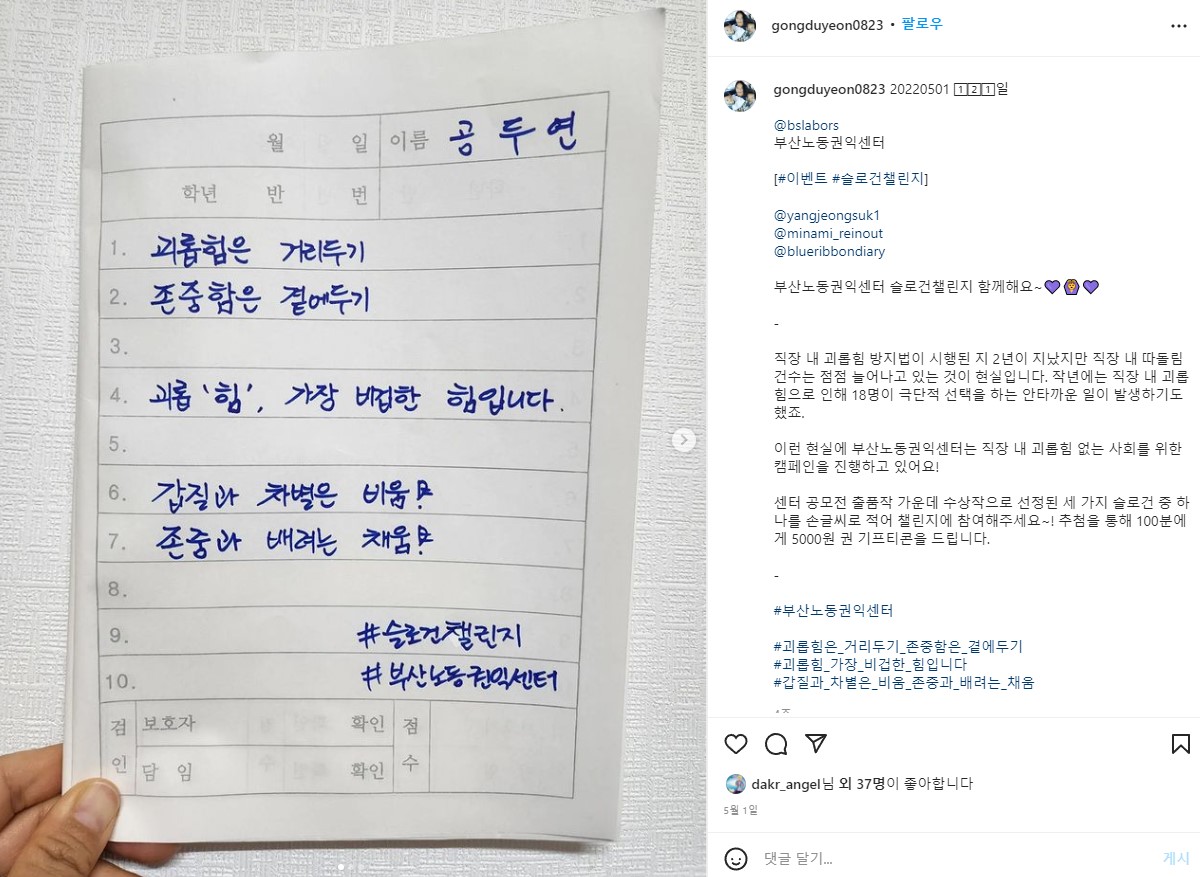 월 일 이름 공두연
학년 반 번
1. 괴롭힘은 거리두기
2. 존중함은 곁에두기
3.
4. 괴롭 '힘', 가장 비겁한 힘입니다.
5.
6. 갑질과 차별은 비움!
7. 존중과 배려는 채움!
8.
9. #슬로건챌린지
10. #부산노동권익센터
검인 보호자 확인 점수
담 임 확인
gongduyeon0823 • 팔로우
gongduyeon0823 20220501 1️⃣2️⃣1️⃣일
@bslabors
부산노동권익센터
[#이벤트 #슬로건챌린지]
@yangjeongsuk1
@minami_reinout
@blueribbondiary
부산노동권익센터 슬로건챌린지 함께해요~💜🙆💜
-
직장 내 괴롭힘 방지법이 시행된 지 2년이 지났지만 직장 내 따돌림
건수는 점점 늘어나고 있는 것이 현실입니다. 작년에는 직장 내 괴롭
힘으로 인해 18명이 극단적 선택을 하는 안타까운 일이 발생하기도
했죠.
이런 현실에 부산노동권익센터는 직장 내 괴롭힘 없는 사회를 위한
캠페인을 진행하고 있어요!
센터 공모전 출품작 가운데 수상작으로 선정된 세 가지 슬로건 중 하
나를 손글씨로 적어 챌린지에 참여해주세요~! 추첨을 통해 100분에
게 5000원 권 기프티콘을 드립니다.
-
#부산노동권익센터
#괴롭힘은_거리두기_존중함은_곁에두기
#괴롭힘_가장_비겁한_힘입니다
#갑질과_차별은_비움_존중과_배려는_채움
dakr_angel님 외 37명이 좋아합니다
5월 1일
댓글 달기...
게시